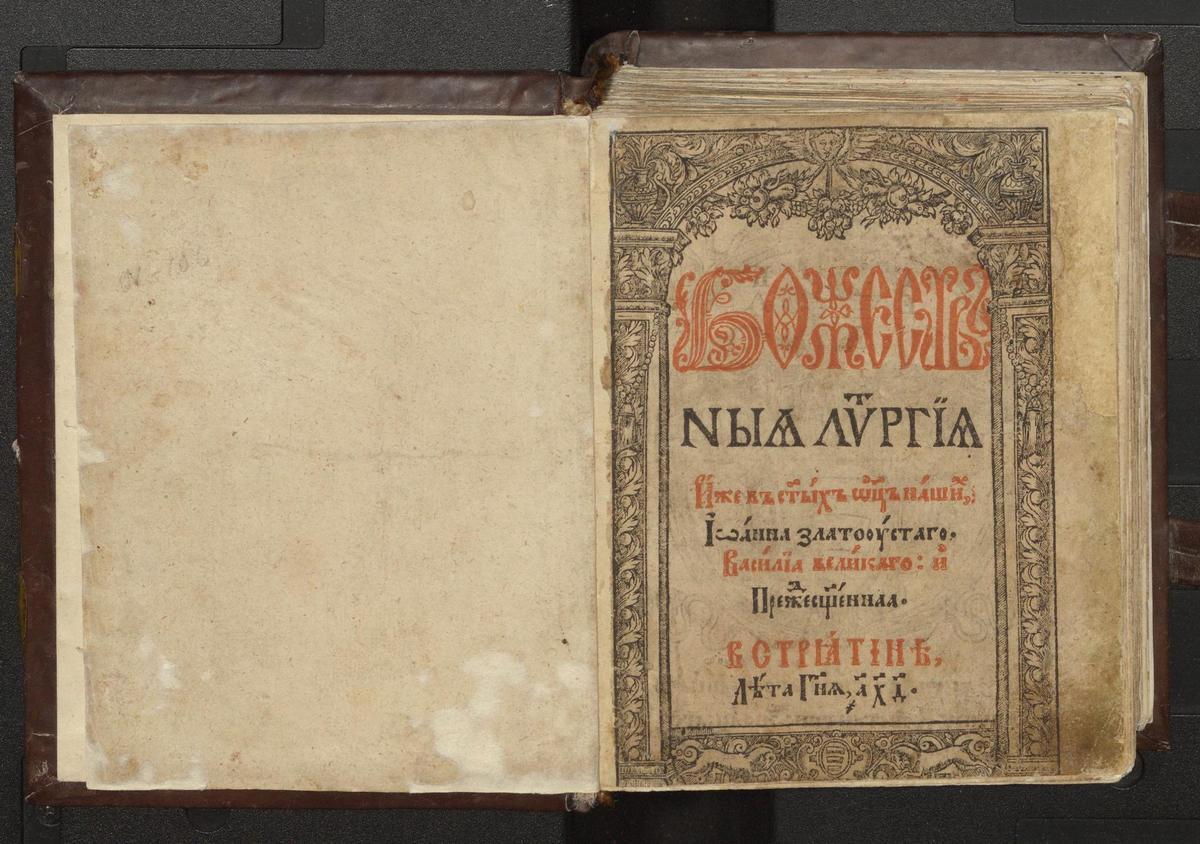 БОЖЕСТВ
НЫѦ ЛѴ̑ТРГЇѦ
И҆́же въ ст҃ы́хъ ѻ҆ц҃ъ на́ши́х,
Їѡа́нна златоꙋ́стаго,
Васи́лїа вели́каго: и҆
Преждесщ҃е́ннаа.
В СТРІА́ТІНѢ,
Лѣ́та Гн҃ѧ, ҂а҃ х҃ д҃.